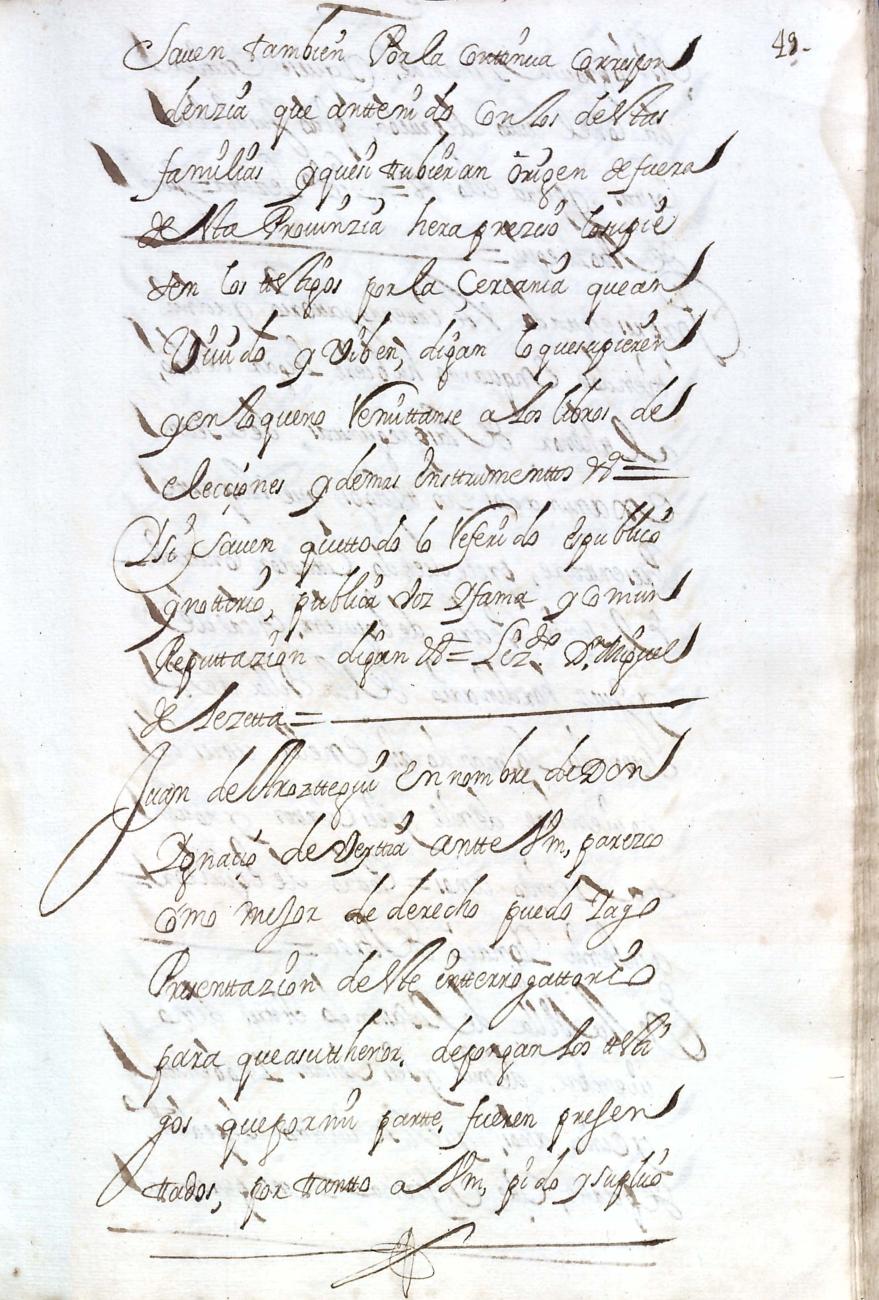 49.
Sauen tambien Por la continua correspon
denzia que an ttenido con los de estas
familias y que si ttubieran origen de fuera
de esta Prouinzia hera prezisso lo supie
sen los ttestigos por la cercania que an
Viuido y Viben, digan lo que supieren
y en lo que no Remittanse a los libros de
elecciones y demas ynsttrumenttos &a =
Si sauen que ttodo lo Referido es publico
y nottorio, publica voz y fama y comun
Reputtazion digan &a = Lizdo Dn Miguel
de Lezetta =
Juan de Arozttegui en nombre de Don
Ygnacio de Vertiz antte Vm, parezco
como mejor de derecho puedo y ago
Presenttazion de este yntterrogattorio
para que a su tthenor, depongan los ttesti
gos que por mi partte, fueren presen
ttados, por ttantto a Vm, pido y suplico